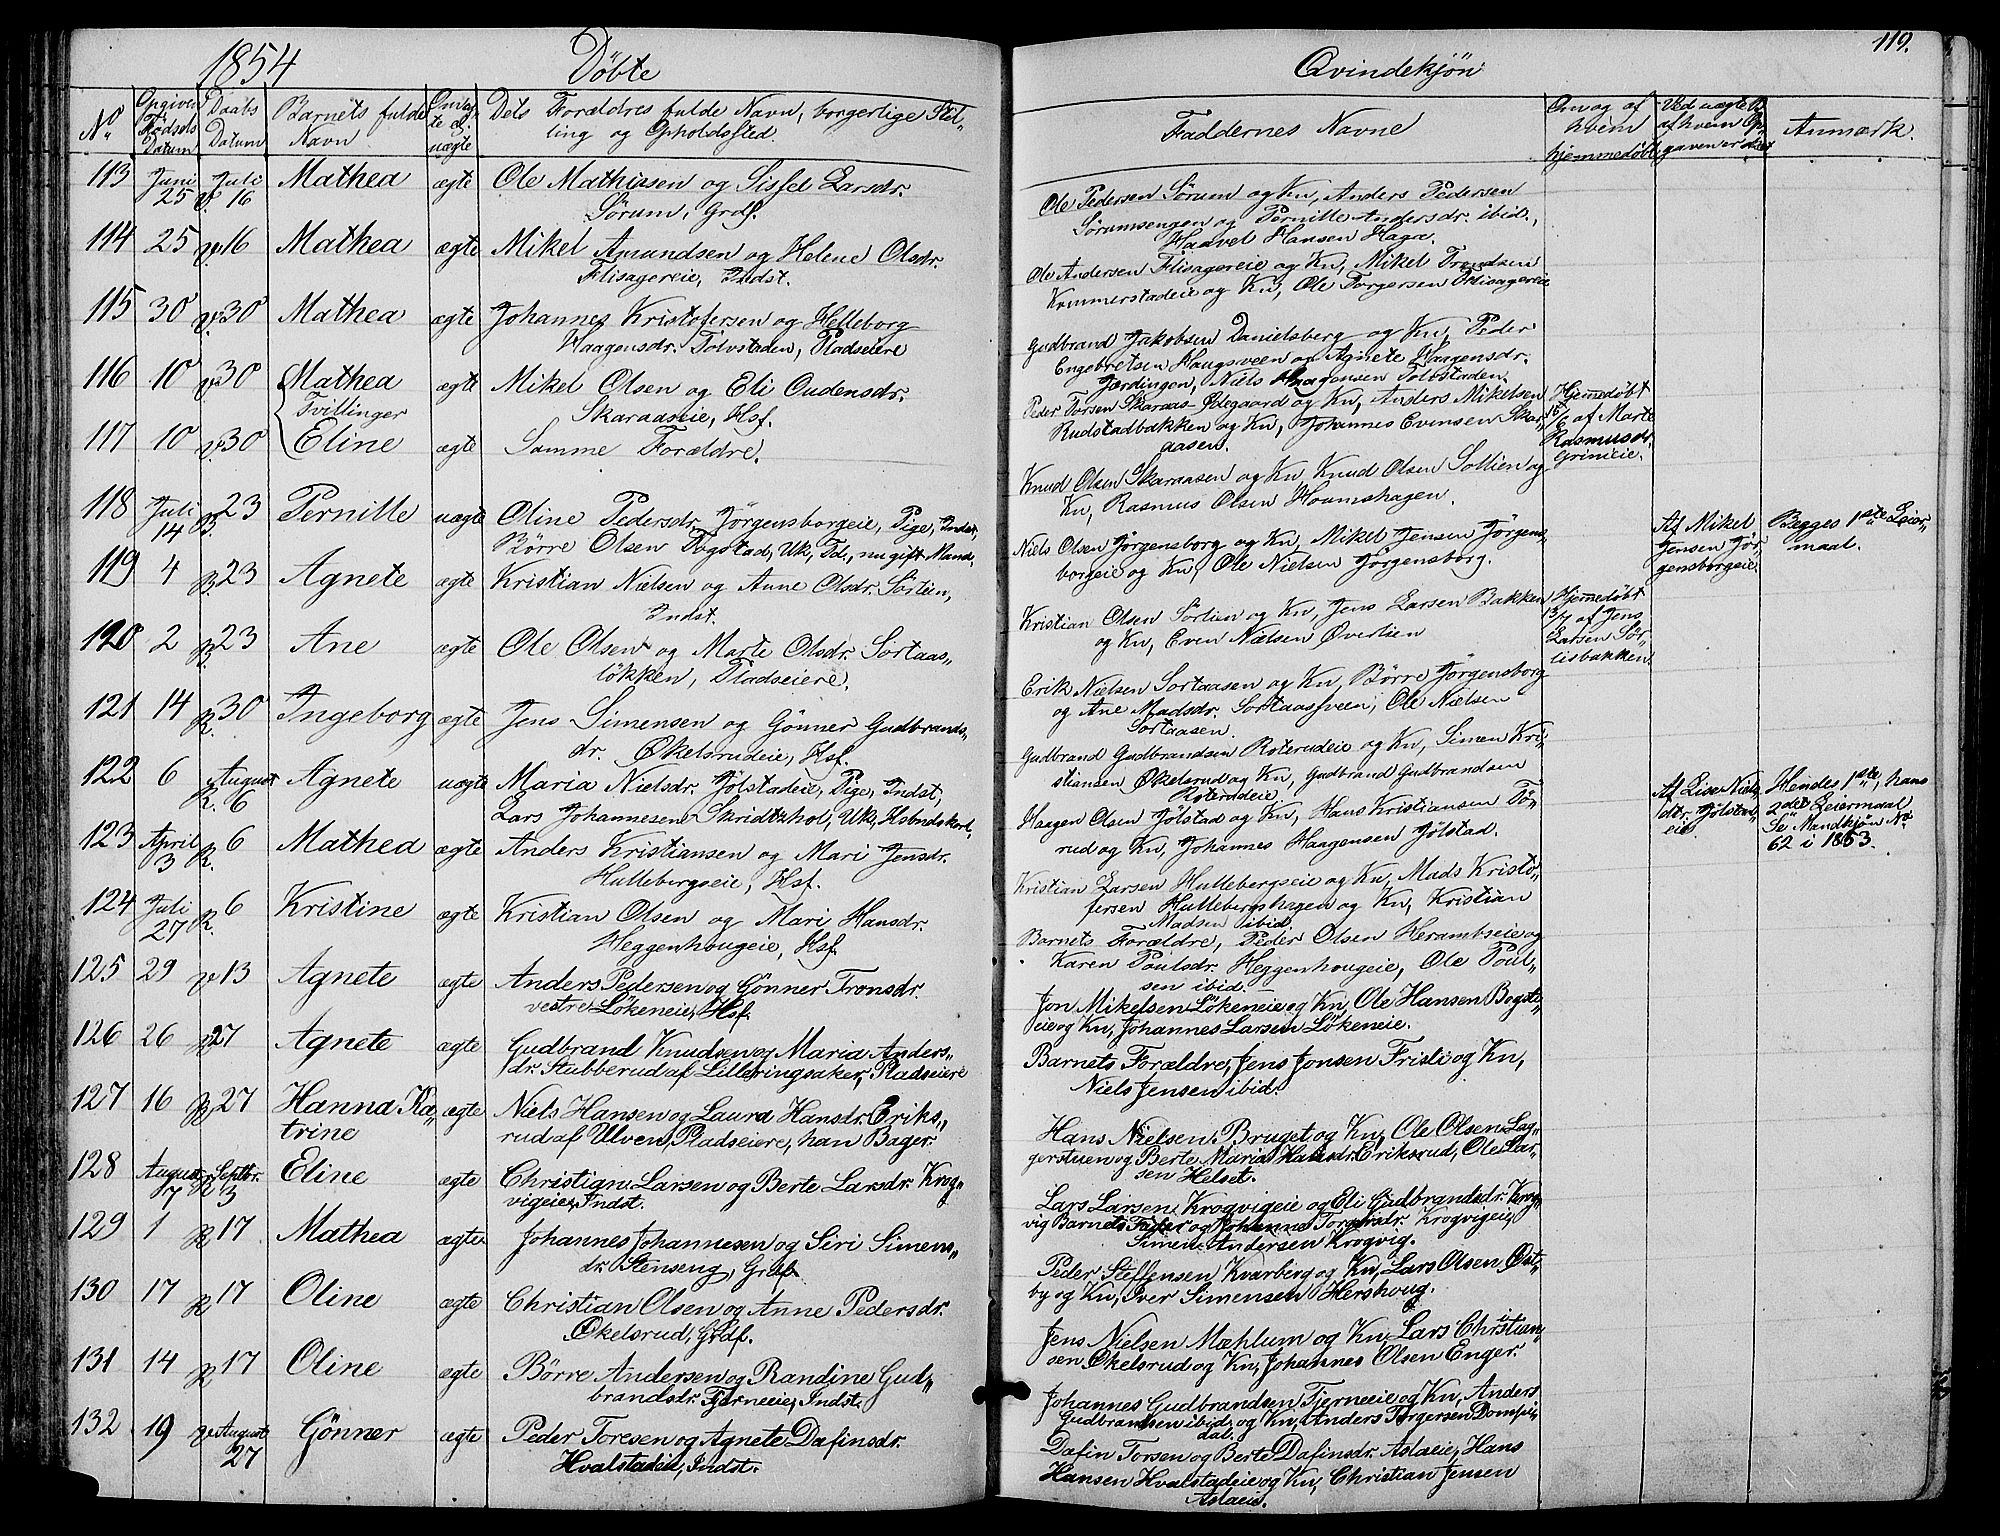 1854
Döbte
No
Opgiven Födsels Datum
Daabs Datum
Barnets fulde Navn
Om ægte el. uægte
Dets Forældres fulde Navn, borgerlige Stil„
ling og Opholdssted.
113 Juni 25 V. Juli 16 Mathea ægte Ole Mathissen og Sissel Larsdr.
Sörum, Grdf.
114 25 V. 16 Mathea ægte Mikel Amundsen og Helene Olsdr.
Flisagereie, Indst.
115 30 V. 30 Mathea ægte Johannes Kristofersen og Helleborg
Haagensdr. Tolvstaden, Pladseiere
116 10 V 30 Mathea ægte Mikel Olsen og Eli Oudensdr.
Tvillinger Skaraaseie, Hsf.
117 10 V. 30 Eline ægte Samme Forældre.
118 Juli 14 B. 23 Pernille uægte Oline Pedersdr. Jörgensborgeie, Pige, Indst,
Börre Olsen Togstad, Uk, Td., nu gift Mand.
119 4 B. 23 Agnete ægte Kristian Nielsen og Anne Olsdr. Sörlien,
Indst.
120 2 B. 23 Ane ægte Ole Olsen og Marte Olsdr. Sortaas„
lökken, Pladseiere.
121 14 R. 30 Ingeborg ægte Jens Simensen og Gönner Gudbrands„
dr. Økelsrudeie, Hsf.
122 6 August R. 6 Agnete uægte Maria Nielsdr. Jölstadeie, Pige, Indst,
Lars Johannesen Skridtshol, Uk, Hsbndskarl,
123 April 3 R. 6 Mathea ægte Anders Kristiansen og Mari Jensdr.
Hullebergseie, Hsf.
124 Juli 27 R. 6 Kristine ægte Kristian Olsen og Mari Hansdr.
Heggenhougeie, Hsf.
125 29 V 13 Agnete ægte Anders Pedersen og Gönner Tronsdr.
vestre Lökeneie, Hsf.
126 26 V 27 Agnete ægte Gudbrand Knudsen og Maria Anders„
dr. Stubberud af Lilleringsaker, Pladseiere
127 16 R 27 Hanna Ka„ ægte Niels Hansen og Laura Hansdr. Eriks„
trine rud af Ulven, Pladseiere, han Bager.
128 August 17 R Septbr. 3 Eline ægte Christian Larsen og Berte Larsdr. Krog„
vigeie, Indst.
129 1 R 17 Mathea ægte Johannes Johannesen og Siri Simens„
dr. Stenseng, Grdf.
130 17 R 17 Oline ægte Christian Olsen og Anne Pedersdr.
Økelsrud, Grdf.
131 14 R 17 Oline ægte Börre Andersen og Randine Gul„
brandsdr. Fjerneeie, Indst.
132 19 V August 27 Gönner ægte Peder Toresen og Agnete Dafinsdr.
Hvalstadeie, Indst.
119.
Qvindekjön
Faddernes Navne
Om og af hvem hjemmedöbt
Ved uægte B. af hvem Opgaven er skeet
Anmærk.
Ole Pedersen Sörum og Kn, Anders Pedersen
Sörumsengen og Pernille Andersdr. ibid.,
Haavel Hansen Hagn.
Ole Andersen Flisagereie og Kn, Mikel Trondsen
Kommerstadeie og Kn, Ole Torgersen Flisagereie
Gudbrand Jakobsen Danielsberg og Kn, Peder
Engebretsen Haugsveen og Agnete Haagensdr.
Jærdingen, Niels Haagensen Tolvstaden.
Peder Torsen Skaraas Ødegaard og Kn, Anders Mikelsen
Rudstadbakken og Kn, Johannes Evensen Skar„
aasen.
Hjemmedöbt
16/6 af Marte
Rasmusdr.
Grimeie.
Knud Olsen Skaraasen og Kn, Knud Olsen Sollien og
Kn, Rasmus Olsen Houmshagen.
Niels Olsen Jörgensborg og Kn, Mikel Jensen Jörgens„
borgeie og Kn, Ole Nielsen Jörgensborg.
Af Mikel
Jensen Jör„
gensborgeie.
Begges 1ste Leier„
maal.
Kristian Olsen Sörlien og Kn, Jens Larsen Bakken
og Kn, Even Nielsen Øverlien
Hjemmedöbt
13/7 af Jens
Larsen Sör„
lisbakken.
Erik Nielsen Sortaasen og Kn, Börre Jörgensborg
og Ane Madsdr. Sortaasveen, Ole Nielsen
Sortaasen.
Gudbrand Gudbrandsen Roterudeie og Kn, Simen Kri„
stiansen Økelsrud og Kn, Gudbrand Gudbrandsen
Roterudeie.
Haagen Olsen Jölstad og Kn, Hans Kristiansen Tö„
rud og Kn, Johannes Haagensen Jölstad.
Af Lise Niels„
dtr. Jölstad„
eie
Hendes 1ste, hans
2det Leiermaal
Se Mandkjön No
62 i 1853.
Kristian Larsen Hullebergseie og Kn, Mads Kristo„
fersen Hullebergshagen og Kn, Kristian
Madsen ibid.
Barnets Forældre, Peder Olsen Herambseie og
Karen Poulsdr. Heggenhougeie, Ole Poul„
sen ibid.
Jon Mikelsen Lökeneie og Kn, Ole Hansen Bogste„
eie og Kn, Johannes Larsen Lökeneie.
Barnets Forældre, Jens Jonsen Frisli og Kn,
Niels Jensen ibid.
Hans Nielsen Bruget og Kn, Ole Olsen Lag„
gerstuen og Berte Maria Hansdr. Eriksrud, Ole Lar„
sen Helset.
Lars Larsen Krogvigeie og Eli Gudbrandsdr. Krog„
vig Barnets Fader og Johanne Torgersdr. Krogvigeie,
Simen Andersen Krogvig.
Peder Steffensen Kvarberg og Kn, Lars Olsen Øst„
by og Kn, Iver Simensen Hershoug.
Jens Nielsen Mæhlum og Kn, Lars Christian„
sen Økelsrud og Kn, Johannes Olsen Enger.
Johannes Gudbrandsen Fjerneeie og Kn, Anders
Gudbrandsen ibid. og Kn, Anders Torgersen Dompi„
dal.
Dafin Torsen og Berte Dafinsdr. Aslaeie, Hans
Hansen Hvalstadeie og Kn, Christian Jensen
Aslaeie.